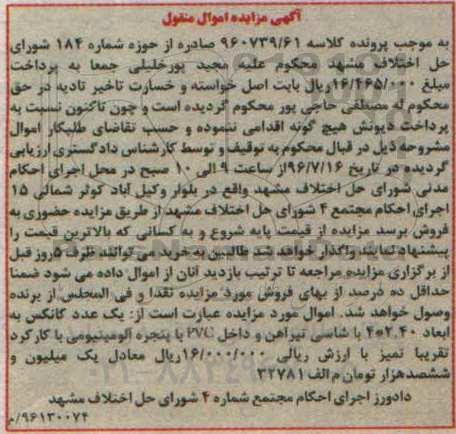 آگهی مزایده اموال منقول
به موجب پرونده کلاسه ۹۶۰۷۳۹/۶۱ صادره از حوزه شماره ۱۸۴ شورای
حل اختلاف مشهد محکوم علیه مجید پورخلیلی جمعا به پرداخت
مبلغ ۱۶/۲۶۵/۰۰۰ریال بابت اصل خواسته و خسارت تاخیر تادیه در حق
محکوم له مصطفی حاجی پور محکوم گردیده است و چون تاکنون نسبت به
پرداخت دیونش هیچ گونه اقدامی ننموده و حسب تقاضای طلبکار اموال
مشروحه ذیل در قبال محکوم به توقیف و توسط کارشناس دادگستری ارزیابی
گردیده در تاریخ ۹۶/۷/۱۶از ساعت ۹ الی ۱۰ صبح در محل اجرای احکام
مدنی شورای حل اختلاف مشهد واقع در بلوار وکیل آباد کوثر شمالی ۱۵
اجرای احکام مجتمع ۴ شورای حل اختلاف مشهد از طریق مزایده حضوری به
فروش برسد مزایده از قیمت پایه شروع و به کسانی که بالاترین قیمت را
پیشنهاد نمایند واگذار خواهد شد طالبین به خرید می توانند ظرف ۵روز قبل
از برگزاری مزایده مراجعه تا ترتیب بازدید آنان از اموال داده می شود ضمنا
حداقل ده درصد از بهای فروش مورد مزایده نقدا و فی المجلس از برنده
وصول خواهد شد. اموال مورد مزایده عبارت است از: یک عدد کانکس به
ابعاد ۲.۴۰*۴ با شاسی تیرآهن و داخل PVC با پنجره آلومینیومی با کارکرد
تقریبا تمیز با ارزش ریالی ۱۶/۰۰۰/۰۰۰ریال معادل یک میلیون و
ششصدهزار تومان م الف ۳۲۷۸۱
دادورز اجرای احکام مجتمع شماره ۴ شورای حل اختلاف مشهد
۹۶۱۳۰۰۷۴/م